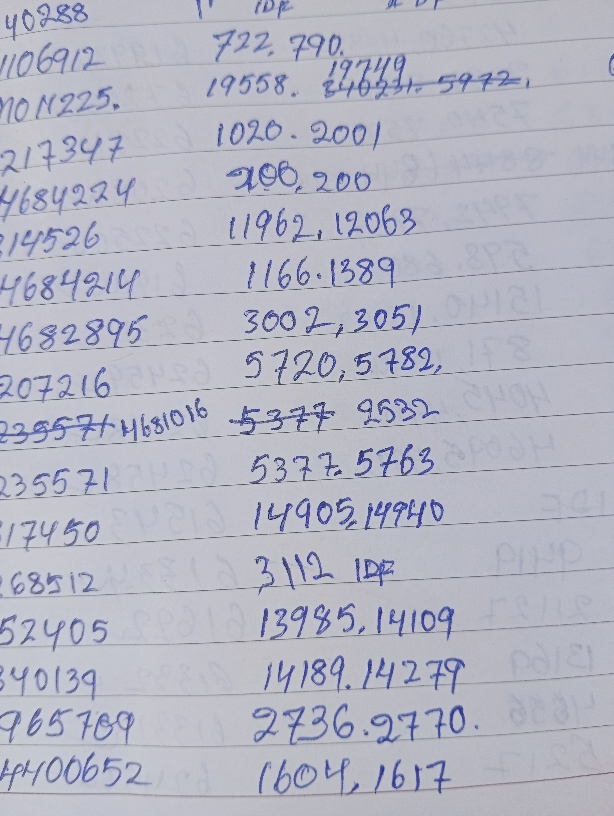 40288 IDF
1106912 722. 790.
19749
225. 19558. 5972.
217347 1020. 2001
4684224 200. 200
314526 11962, 12063
4684214 1166. 1389
4682895 3002, 3051
207216 5720, 5782,
235571 4681016 5377 2532
235571 5377. 5763
317450 14905, 14940
268512 3112 IDF
52405 13985. 14109
340139 14189. 14279
965769 2736. 2770.
4400652 1604, 1617